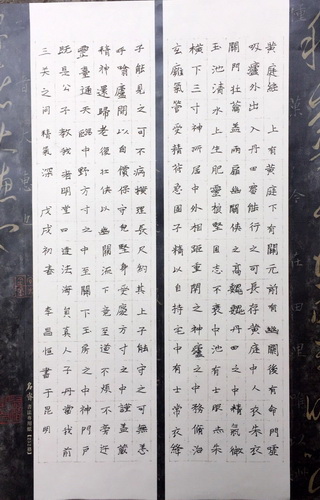 黄庭經 上有黄庭下有關元前有幽關後有命門噓
吸廬外出入丹田審能行之可長存黄庭中人衣朱衣
關門壯籥蓋兩扉幽闕俠之高巍巍丹田之中精氣微
玉池清水上生肥靈根堅固志不衰中池有士服赤朱
横下三寸神所居中外相距重閉之神廬之中務脩治
玄廱氣管受精符急固子精以自持宅中有士常衣絳
子能見之可不病横理長尺約其上子能守之可無恙
呼噏廬間以自償保守完堅身受慶方寸之中謹蓋藏
精神還歸老復壯俠以幽闕流下竟至道不煩不旁迕
靈臺通天臨中野方寸之中至關下玉房之中神門戶
既是公子教我者明堂四達法海員真人子丹當我前
三关之间精氣深 戊戌初春 李昌恒書于昆明